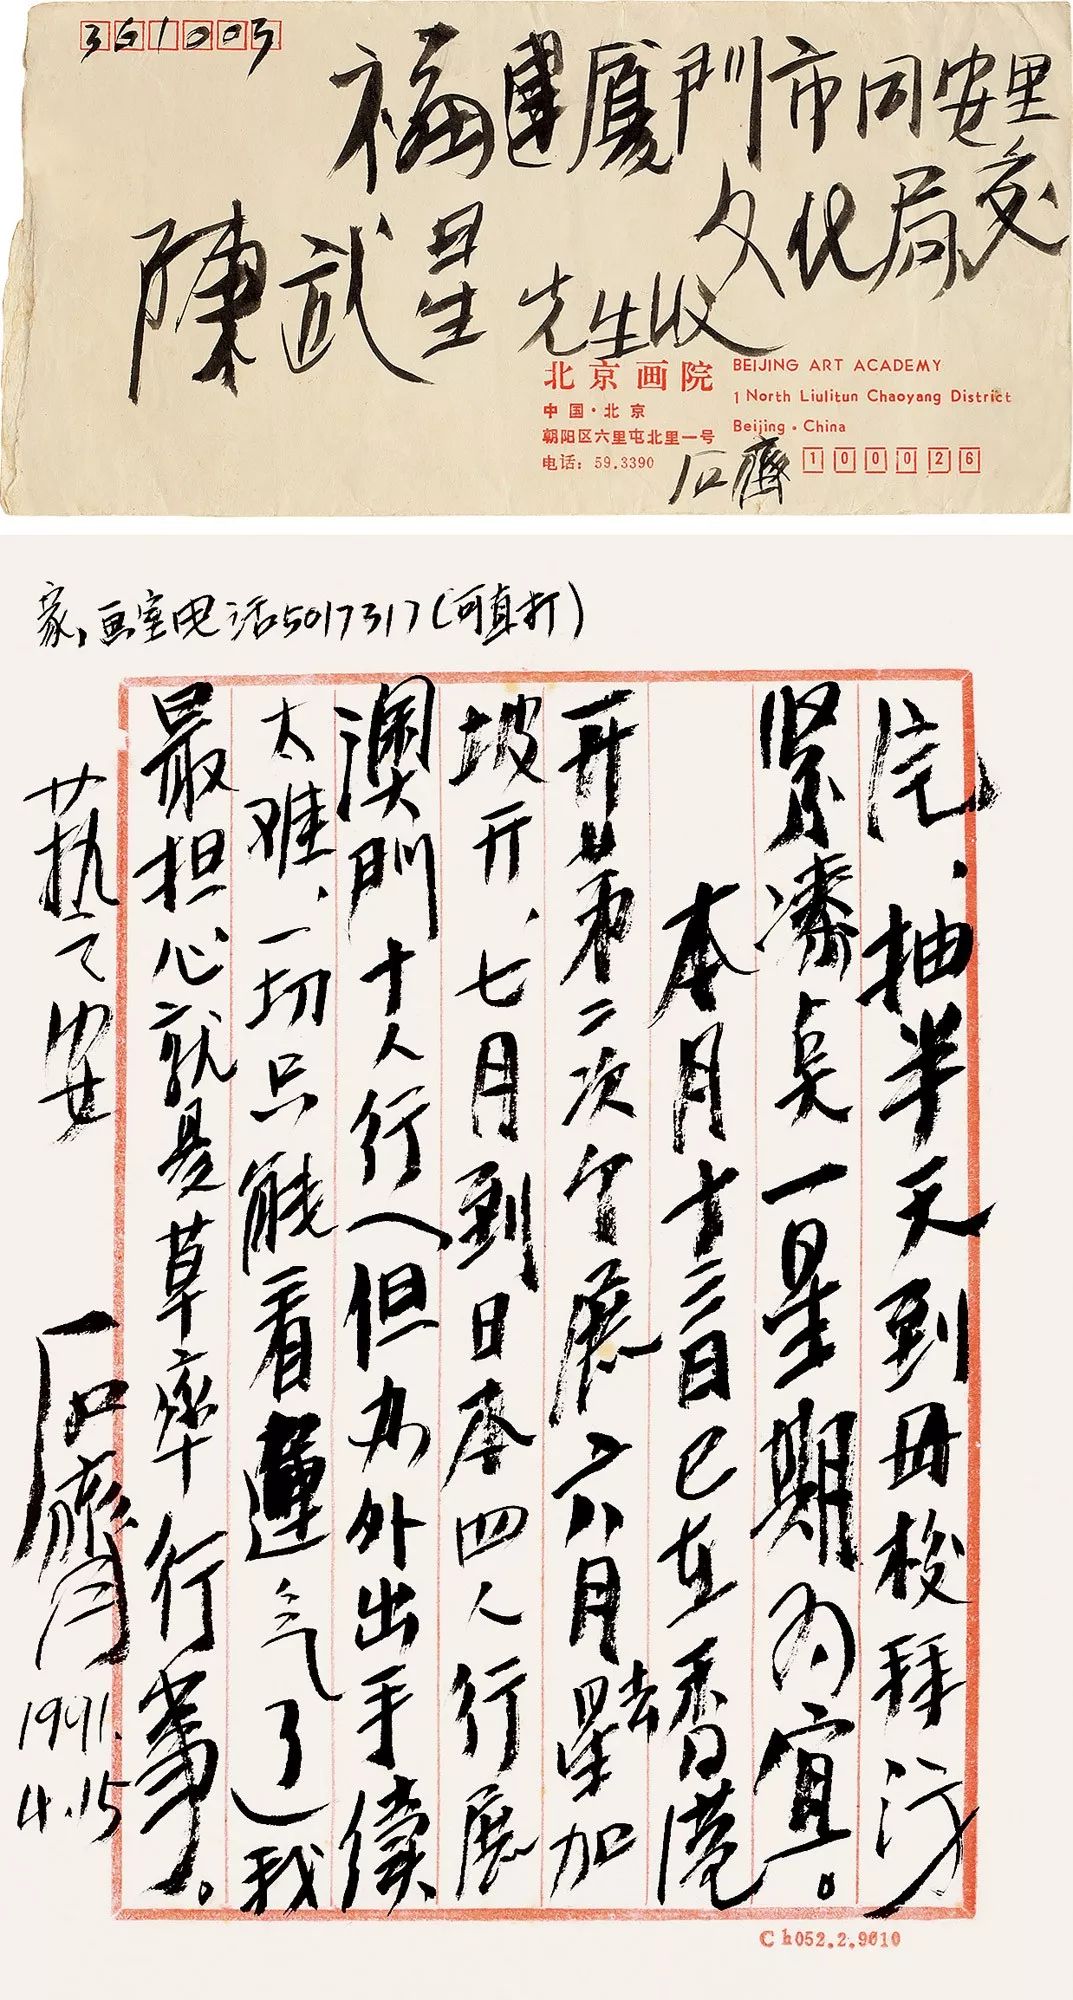 361003
福建厦門市同安里
文化局交
陳武星 先生收
北京画院
中国·北京
朝阳区六里屯北里一号
电话：59.3390
BEIJING ART ACADEMY
1 North Liulitun Chaoyang District
Beijing·China
石齊
100026
家,画室电话5017317(可直打)
院、抽半天到母校拜访
紧凑点一星期为宜。
本月十三日已在香港
开第二次个展六月去星加
坡开、七月到日本四人行展
澳門十人行 但办外出手續
太难、一切只能看運气了我
最担心就是草率行事。
艺安
石齊
1991.
4.15
Ch052.2.9610